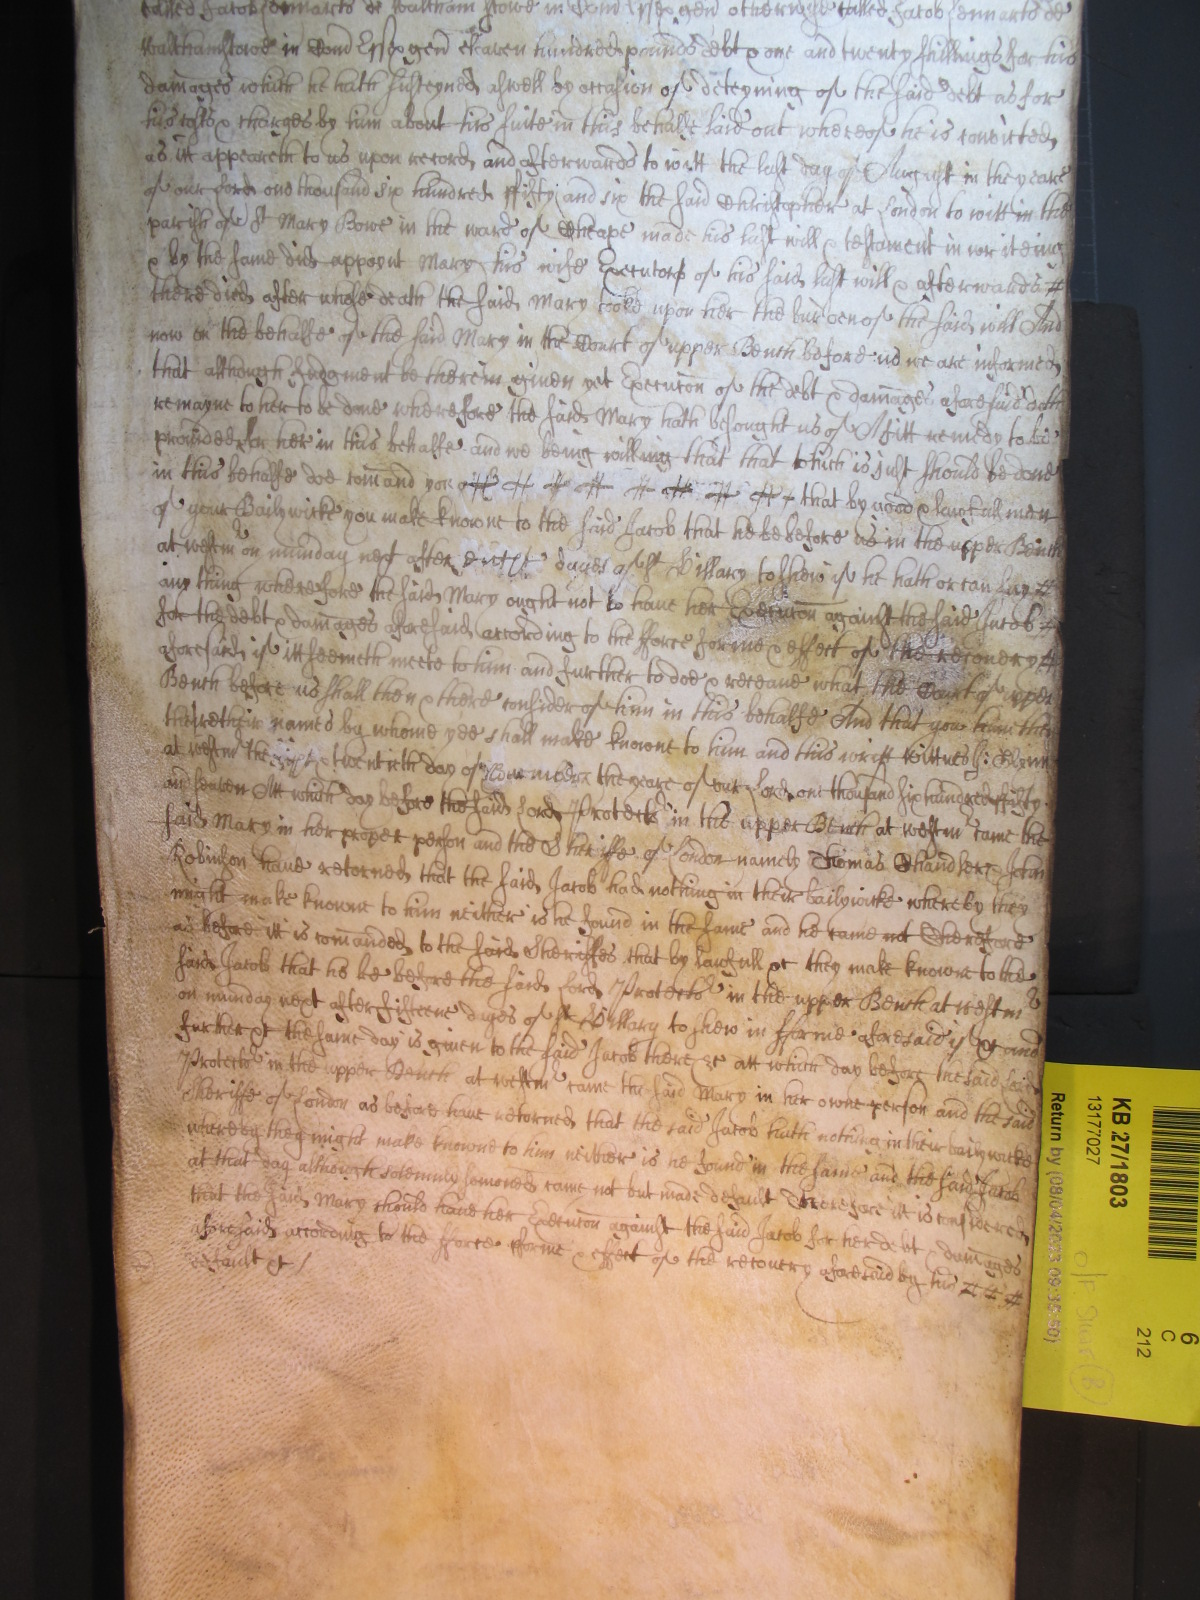 called Jacob Lennarts de Waltham Stowe in Com Essex gen otherwise called Jacob Lennarts de
Walthamstowe in Com Essex gen eleaven hundred pounds debt & one and twenty shillings for his
damages which he hath susteyned aswell by occasion of deteyning of the said debt as for
his costs & charges by him about his suite in this behalfe laid out whereof he is convicted
as itt appeareth to us upon record and afterwards to witt the last day of August in the yeare
of our Lord one thousand six hundred ffifty and six the said Christopher at London to witt in the
parish of St Mary Bowe in the ward of Cheape made his last will & testament in writeing
& by the same did appoynt Mary his wife Executors of his said last will & afterwards #
there died after whose death the said Mary tooke upon her the burden of the said will And
now on the behalfe of the said Mary in the Court of upper Bench before us we are informed
that although Judgment be therein given yet Execution of the debt & damages aforesaid doth
remayne to her to be done wherefore the said Mary hath besought us of A fitt remedy to be
provided for her in this behalfe and we being willing that that which is just should be done
in this behalfe doe comand you # # # # # # # # that by good & lawfull men
of your Bailywicke you make knowne to the said Jacob that he be before us in the upper Bench
at westmr on munday next after dayes of St Hillary to shew if he hath or can say #
any thing wherefore the said Mary ought not to have her Execution against the said Jacob #
for the debt & damages aforesaid according to the fforce forme & effect of the recovery #
aforesaid if itt seemeth meete to him and further to doe & receave what the Court of upper
Bench before us shall then & there consider of him in this behalfe And that you have then
there their names by whome yee shall make knowne to him and this writt wittnes J: Glynn
at westmr the & twentith day of November the yeare of our Lord one thousand six hundred ffifty
and seaven Att which day before the said Lord Protector in the upper Bench at westmr came the
said Mary in her proper person and the Sheriffe of London namely Thomas Chandler & John
Robinson have retorned that the said Jacob had nothing in their bailywicke whereby they
might make knowne to him neither is he found in the same and he came not Therefore
as before itt is comanded to the said Sheriffes that by lawfull &c they make knowne to the
said Jacob that he be before the said Lord Protector in the upper Bench at westmr
on munday next after fifteene dayes of St Hillary to shew in fforme aforesaid if &c and
further &c the same day is given to the said Jacob there &c att which day before the said Lord
Protector in the upper Bench at westmr came the said Mary in her owne person and the said
Sheriffe of London as before have retorned that the said Jacob hath nothing in their bailywicke
whereby they might make knowne to him neither is he found in the same and the said Jacob
at that day although solemnly somoned came not but made default Therefore itt is considered
that the said Mary should have her Execution against the said Jacob for her debt & damages
aforesaid according to the fforce fforme & effect of the recovery aforesaid by his # # #
default &c /
KB 27/1803
13177027
Return by (08/04/2013 09:15:50)
6
C
212